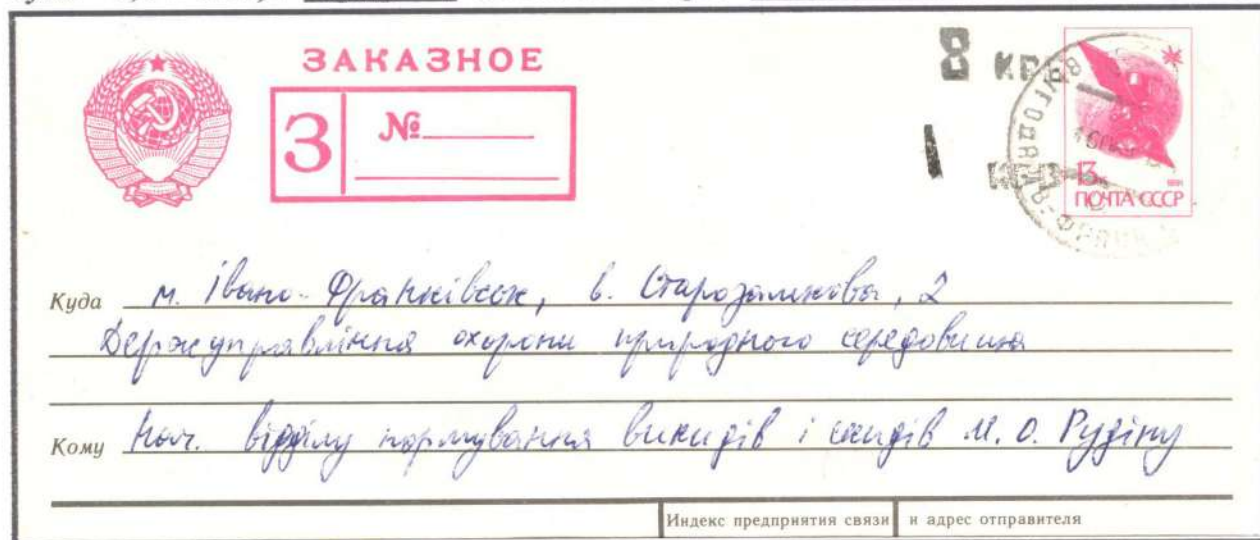 ЗАКАЗНОЕ
З №
8 КРБ
1 КРБ
13к 1991
ПОЧТА СССР
Куда м. Івано-Франківськ, в. Старозамкова, 2
Держуправління охорони природного середовища
Кому Нач. відділу нормування викидів і скидів М. О. Рудіну
Индекс предприятия связи и адрес отправителя